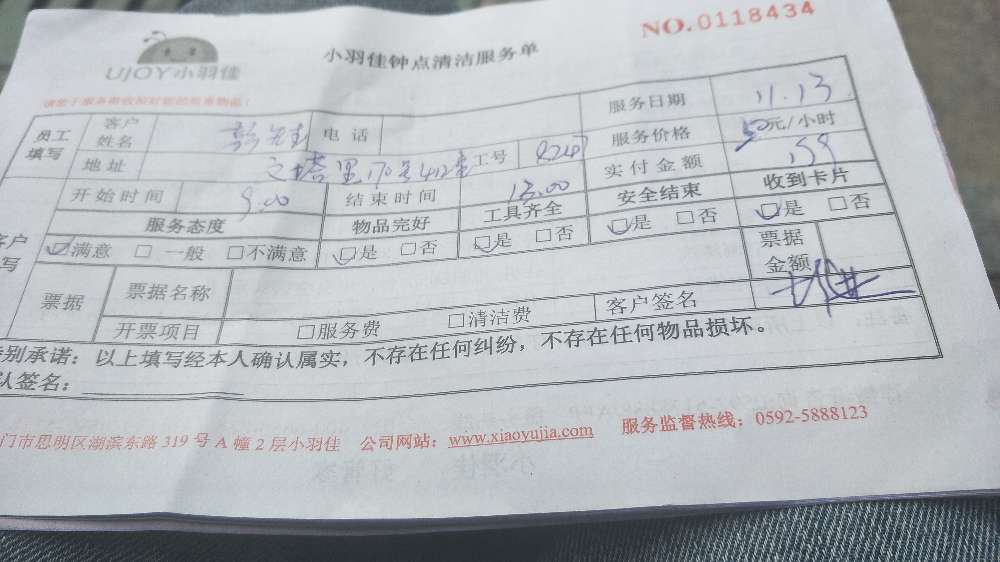 NO.0118434
UJOY小羽佳
小羽佳钟点清洁服务单
员工填写 客户姓名 电话 服务日期 11.13
地址 里170号412室 工号 服务价格 50元/小时
开始时间 9.00 结束时间 13.00 实付金额
服务态度 物品完好 工具齐全 安全结束 收到卡片
☑满意 □一般 □不满意 ☑是 □否 ☑是 □否 ☑是 □否 ☑是 □否
票据 票据名称 票据金额
开票项目 □服务费 □清洁费 客户签名
别承诺：以上填写经本人确认属实，不存在任何纠纷，不存在任何物品损坏。
认签名：
门市思明区湖滨东路 319 号 A 幢 2 层小羽佳 公司网站：www.xiaoyujia.com 服务监督热线：0592-5888123